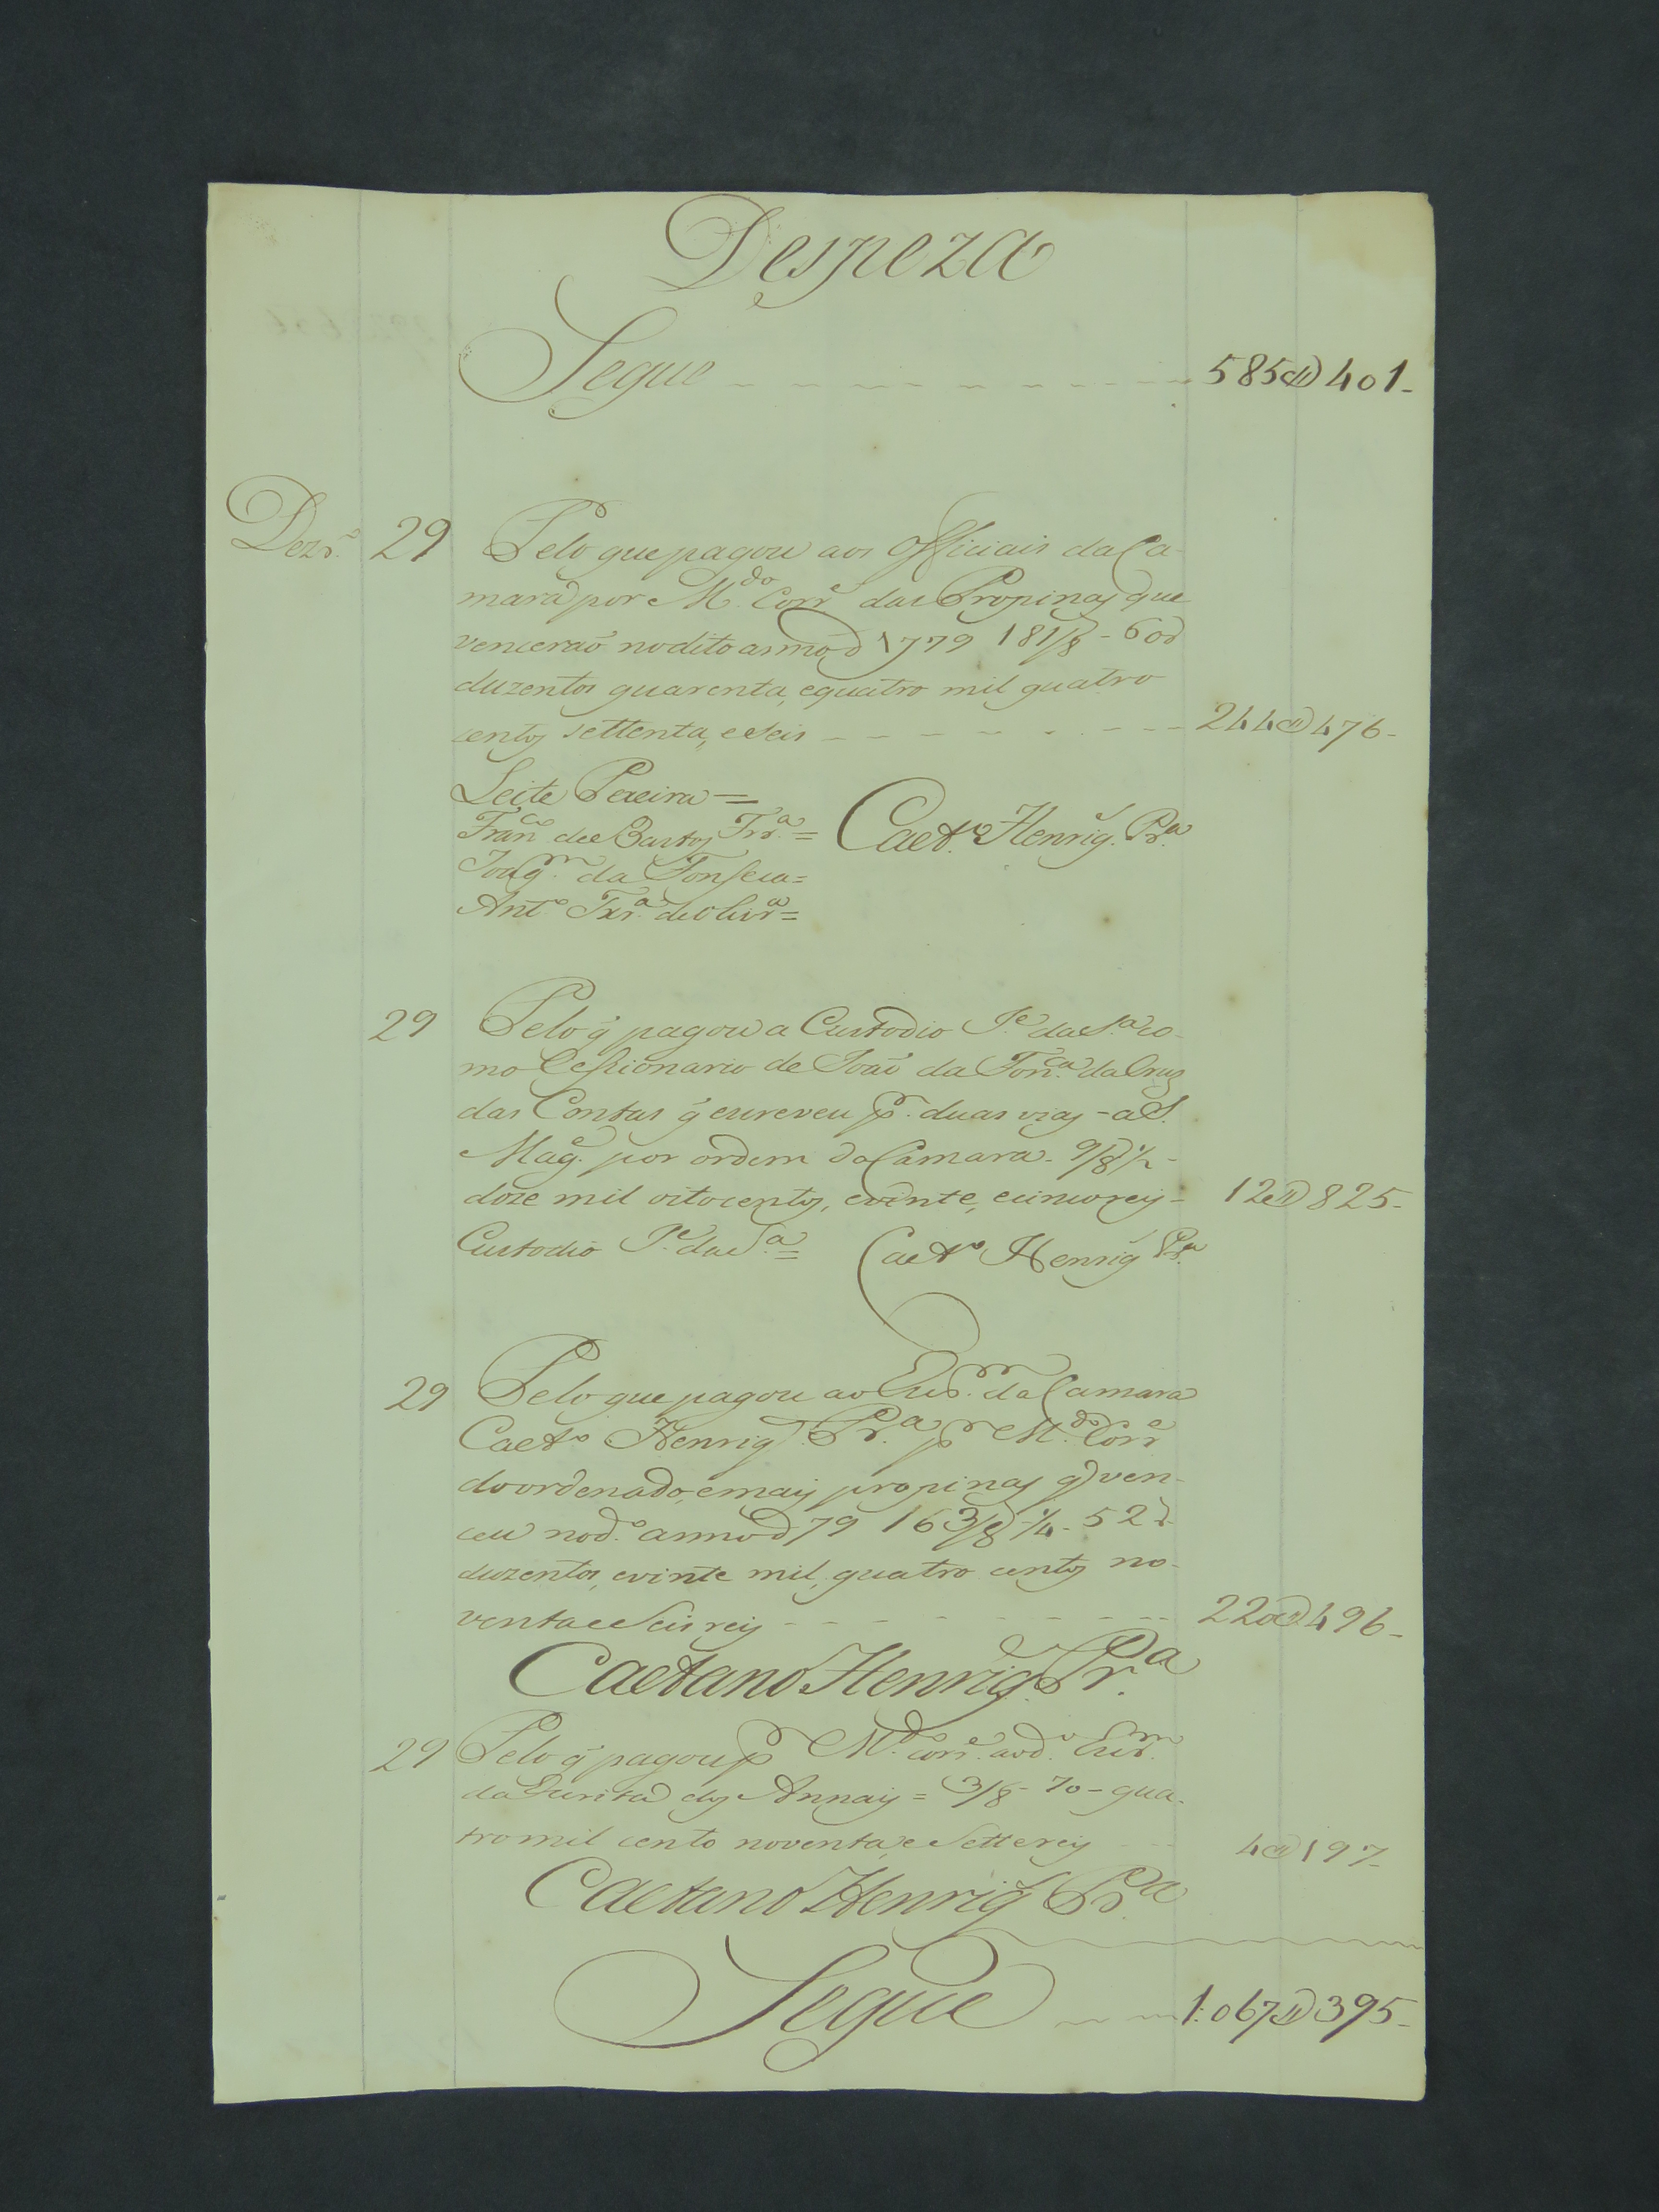 Despeza
Segue 585$401
Dezr.o 29 Pelo que pagou aos Officiais da Ca-
mara por M.do Corr.e das Propinas que
vencerão no dito anno d 1779 181/8 - 60 d
duzentos quarenta, e quatro mil quatro
centos settenta, e Seis 244$476
Leite Pereira =
Fran.co de Bastos Frr.a = Caet.o Henriq. Pr.a
Joaq.m da Fonseca =
Ant.o Txr.a de Olivr.a =
29 Pelo q̃ pagou a Custodio J.e da S.a co-
mo Cessionario de João da Fon.ca da Cruz
das Contas q̃ escreveu p.r duas vias - a S.
Mag.e por ordem da Camara - 9/8 1/2 -
doze mil oitocentos, e vinte, e cinco reis - 12$825
Custodio J.e da S.a = Caet.o Henriq Pr.a
29 Pelo que pagou ao Escr.m da Camara
Caet.o Henriq. Pr.a p.r M.do Corr.e
do ordenado, e mais propinas q ven-
ceu no d.o anno d 79 163/8 - 1/4 - 52 d
duzentos, e vinte mil, quatro centos no-
venta e Seis reis 220$496
Caetano Henriq. Pr.a
29 Pelo q̃ pagou p.r M.do corr.e ao d.o Escr.m
da Escrita dos Annais = 3/8 - 70 - qua-
tro mil cento noventa, e Sette reis 4$197
Caetano Henriq Pr.a
Segue 1:067$395